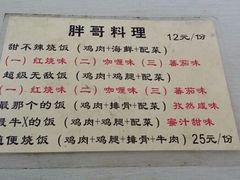 胖哥料理
12元/份
甜不辣烧饭（鸡肉+海鲜+配菜）
（一）红烧味（二）咖喱味（三）蕃茄味
超级无敌饭（鸡肉+鸡腿+配菜）
（一）红烧味（二）咖喱味（三）蕃茄味
最那个的饭（鸡肉+排骨+配菜）孜然咸味
最牛X的饭（鸡肉+鸡腿+配菜）蜜汁甜味
随便烧饭（鸡肉+鸡腿+排骨+牛肉）25元/份